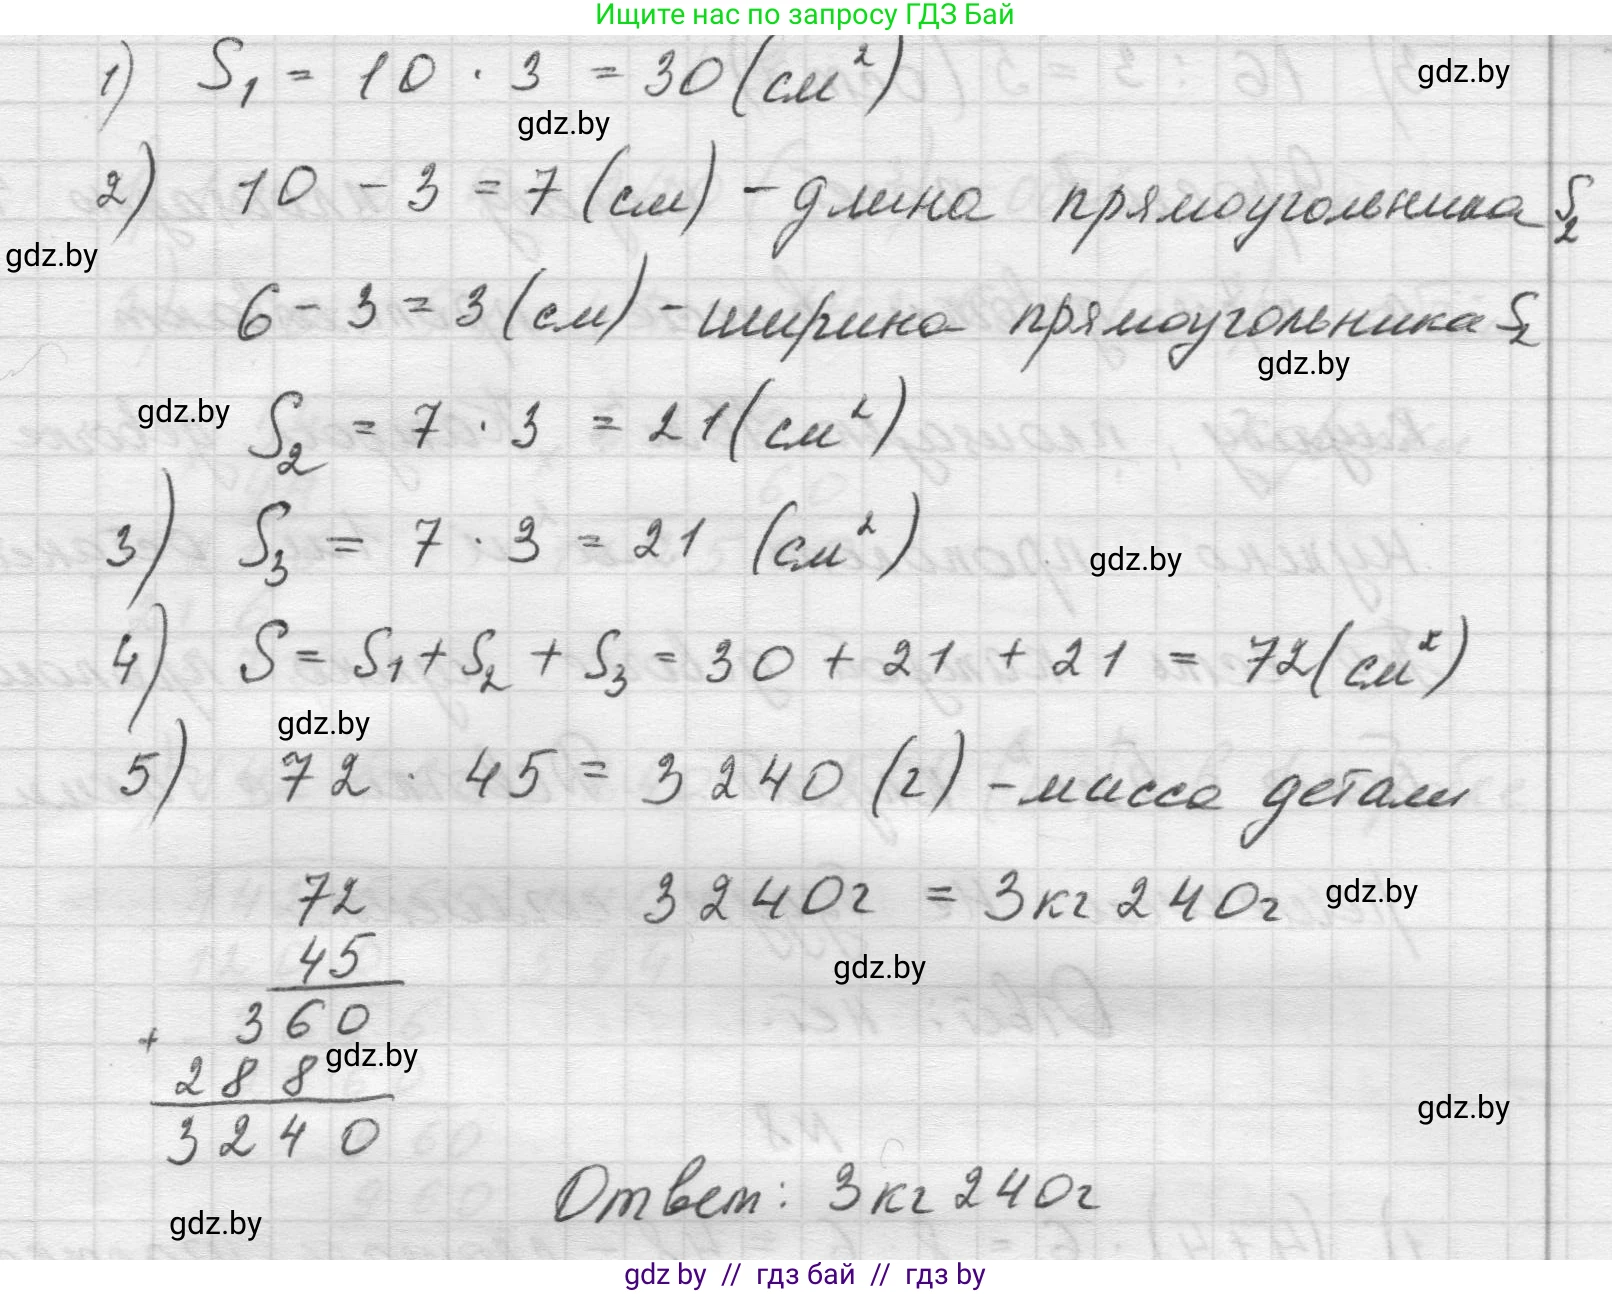 Ищите нас по запросу ГДЗ Бай
1) S₁ = 10 · 3 = 30 (см²)
gdz.by
gdz.by
2) 10 - 3 = 7 (см) - длина прямоугольника S₂
gdz.by
6 - 3 = 3 (см) - ширина прямоугольника S₂
gdz.by
gdz.by
S₂ = 7 · 3 = 21 (см²)
3) S₃ = 7 · 3 = 21 (см²)
gdz.by
4) S = S₁ + S₂ + S₃ = 30 + 21 + 21 = 72 (см²)
gdz.by
5) 72 · 45 = 3240 (г) - масса детали
72
3240г = 3кг 240г
gdz.by
45
gdz.by
360
+
gdz.by
288
3240
gdz.by
Ответ: 3кг 240г
gdz.by
gdz by // гдз бай // gdz by